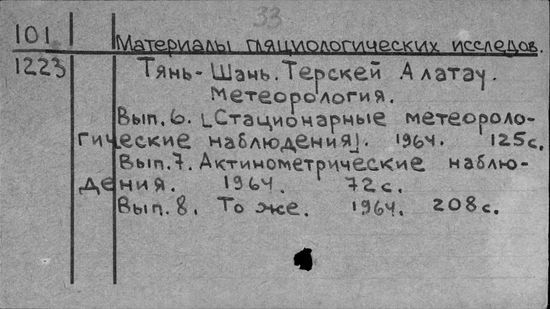 33
101 Материалы гляциологических исследов.
1223 Тянь-Шань. Терскей Алатау.
Метеорология.
Вып. 6. [Стационарные метеороло-
гические наблюдения]. 1964. 125 с.
Вып. 7. Актинометрические наблю-
дения. 1964. 72 с.
Вып. 8. То же. 1964. 208 с.